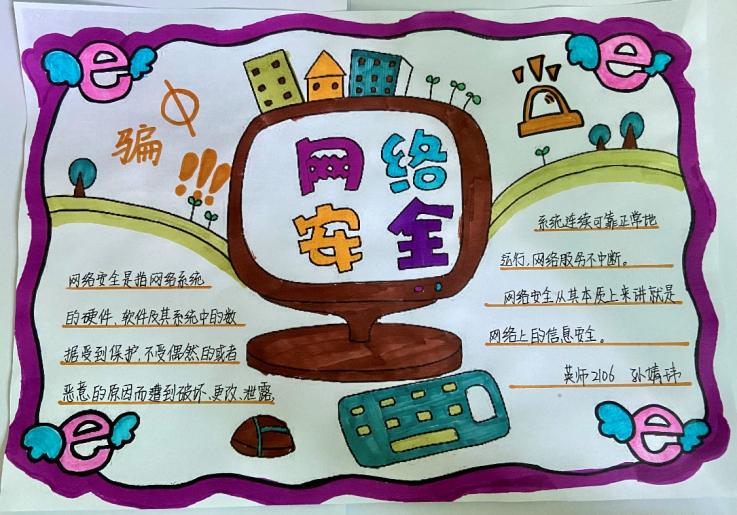 e
e
骗
!!!
网络
安全
网络安全是指网络系统
的硬件、软件及其系统中的数
据受到保护,不受偶然的或者
恶意的原因而遭到破坏、更改、泄露,
系统连续可靠正常地
运行,网络服务不中断。
网络安全从其本质上来讲就是
网络上的信息安全。
英师2106 孙婧玮
e
e